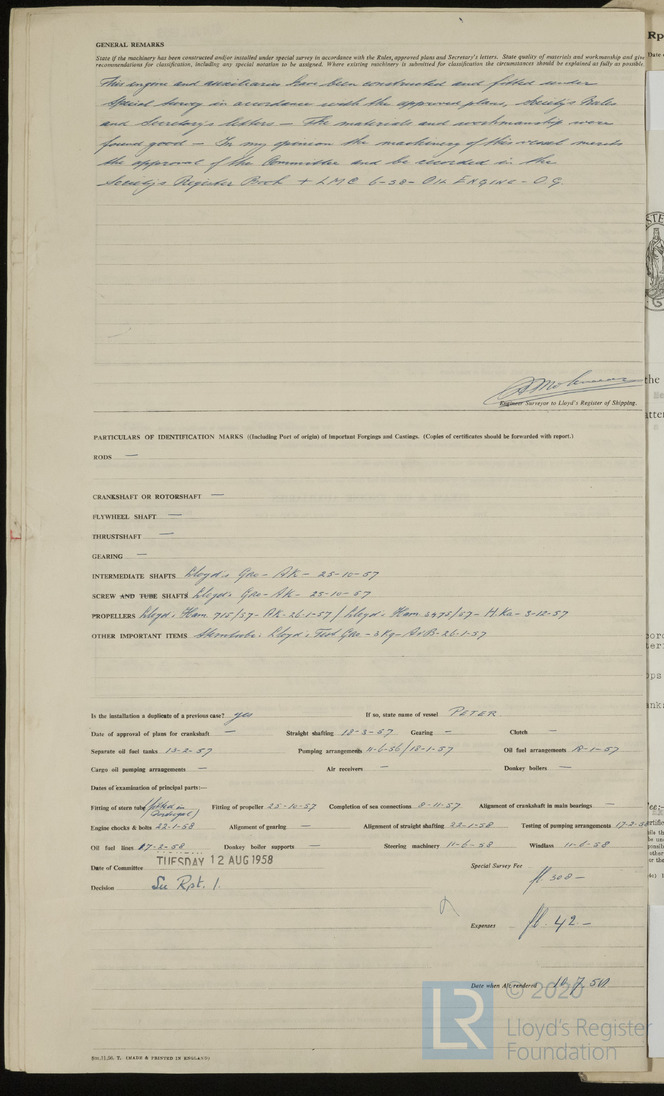 GENERAL REMARKS
State if the machinery has been constructed and/or installed under special survey in accordance with the Rules, approved plans and Secretary's letters. State quality of materials and workmanship and give
recommendations for classification, including any special notation to be assigned. Where existing machinery is submitted for classification the circumstances should be explained as fully as possible.
This engine and auxiliaries have been constructed and fitted under
special survey in accordance with the approved plans, Society's Rules
and Secretary's letters — The materials and workmanship were
found good — In my opinion the machinery of this vessel merits
the approval of the Committee and be recorded in the
Society's Register Book + LMC 6-58- OIL ENGINE - O.G.
Engineer Surveyor to Lloyd's Register of Shipping.
PARTICULARS OF IDENTIFICATION MARKS ((Including Port of origin) of Important Forgings and Castings. (Copies of certificates should be forwarded with report.)
RODS —
CRANKSHAFT OR ROTORSHAFT —
FLYWHEEL SHAFT —
THRUSTSHAFT —
GEARING —
INTERMEDIATE SHAFTS Lloyd's Gro - AK - 25-10-57
SCREW AND TUBE SHAFTS Lloyd's Gro - AK - 25-10-57
PROPELLERS Lloyd's Ham 715/57 - AK - 26-1-57 / Lloyd's Ham 3475/57 - H.Ka - 3-12-57
OTHER IMPORTANT ITEMS Sterntube: Lloyd's Test Gro - 26-1-57
Is the installation a duplicate of a previous case? yes If so, state name of vessel PETER
Date of approval of plans for crankshaft — Straight shafting 18-3-57 Gearing — Clutch —
Separate oil fuel tanks 13-2-57 Pumping arrangements 11-6-56/18-1-57 Oil fuel arrangements 18-1-57
Cargo oil pumping arrangements — Air receivers — Donkey boilers —
Dates of examination of principal parts:—
Fitting of stern tube (fitted in Fitting of propeller 25-10-57 Completion of sea connections 8-11-57 Alignment of crankshaft in main bearings —
Engine chocks & bolts 22-1-58 Alignment of gearing — Alignment of straight shafting 22-1-58 Testing of pumping arrangements 17-2-58
Oil fuel lines 17-2-58 Donkey boiler supports — Steering machinery 11-6-58 Windlass 11-6-58
Date of Committee TUESDAY 12 AUG 1958 Special Survey Fee
Decision See Rpt. 1. fl. 308 —
Expenses fl. 42 —
Date when A/c rendered 10.7.58
© 2020
LR
Lloyd's Register
Foundation
(MADE & PRINTED IN ENGLAND)